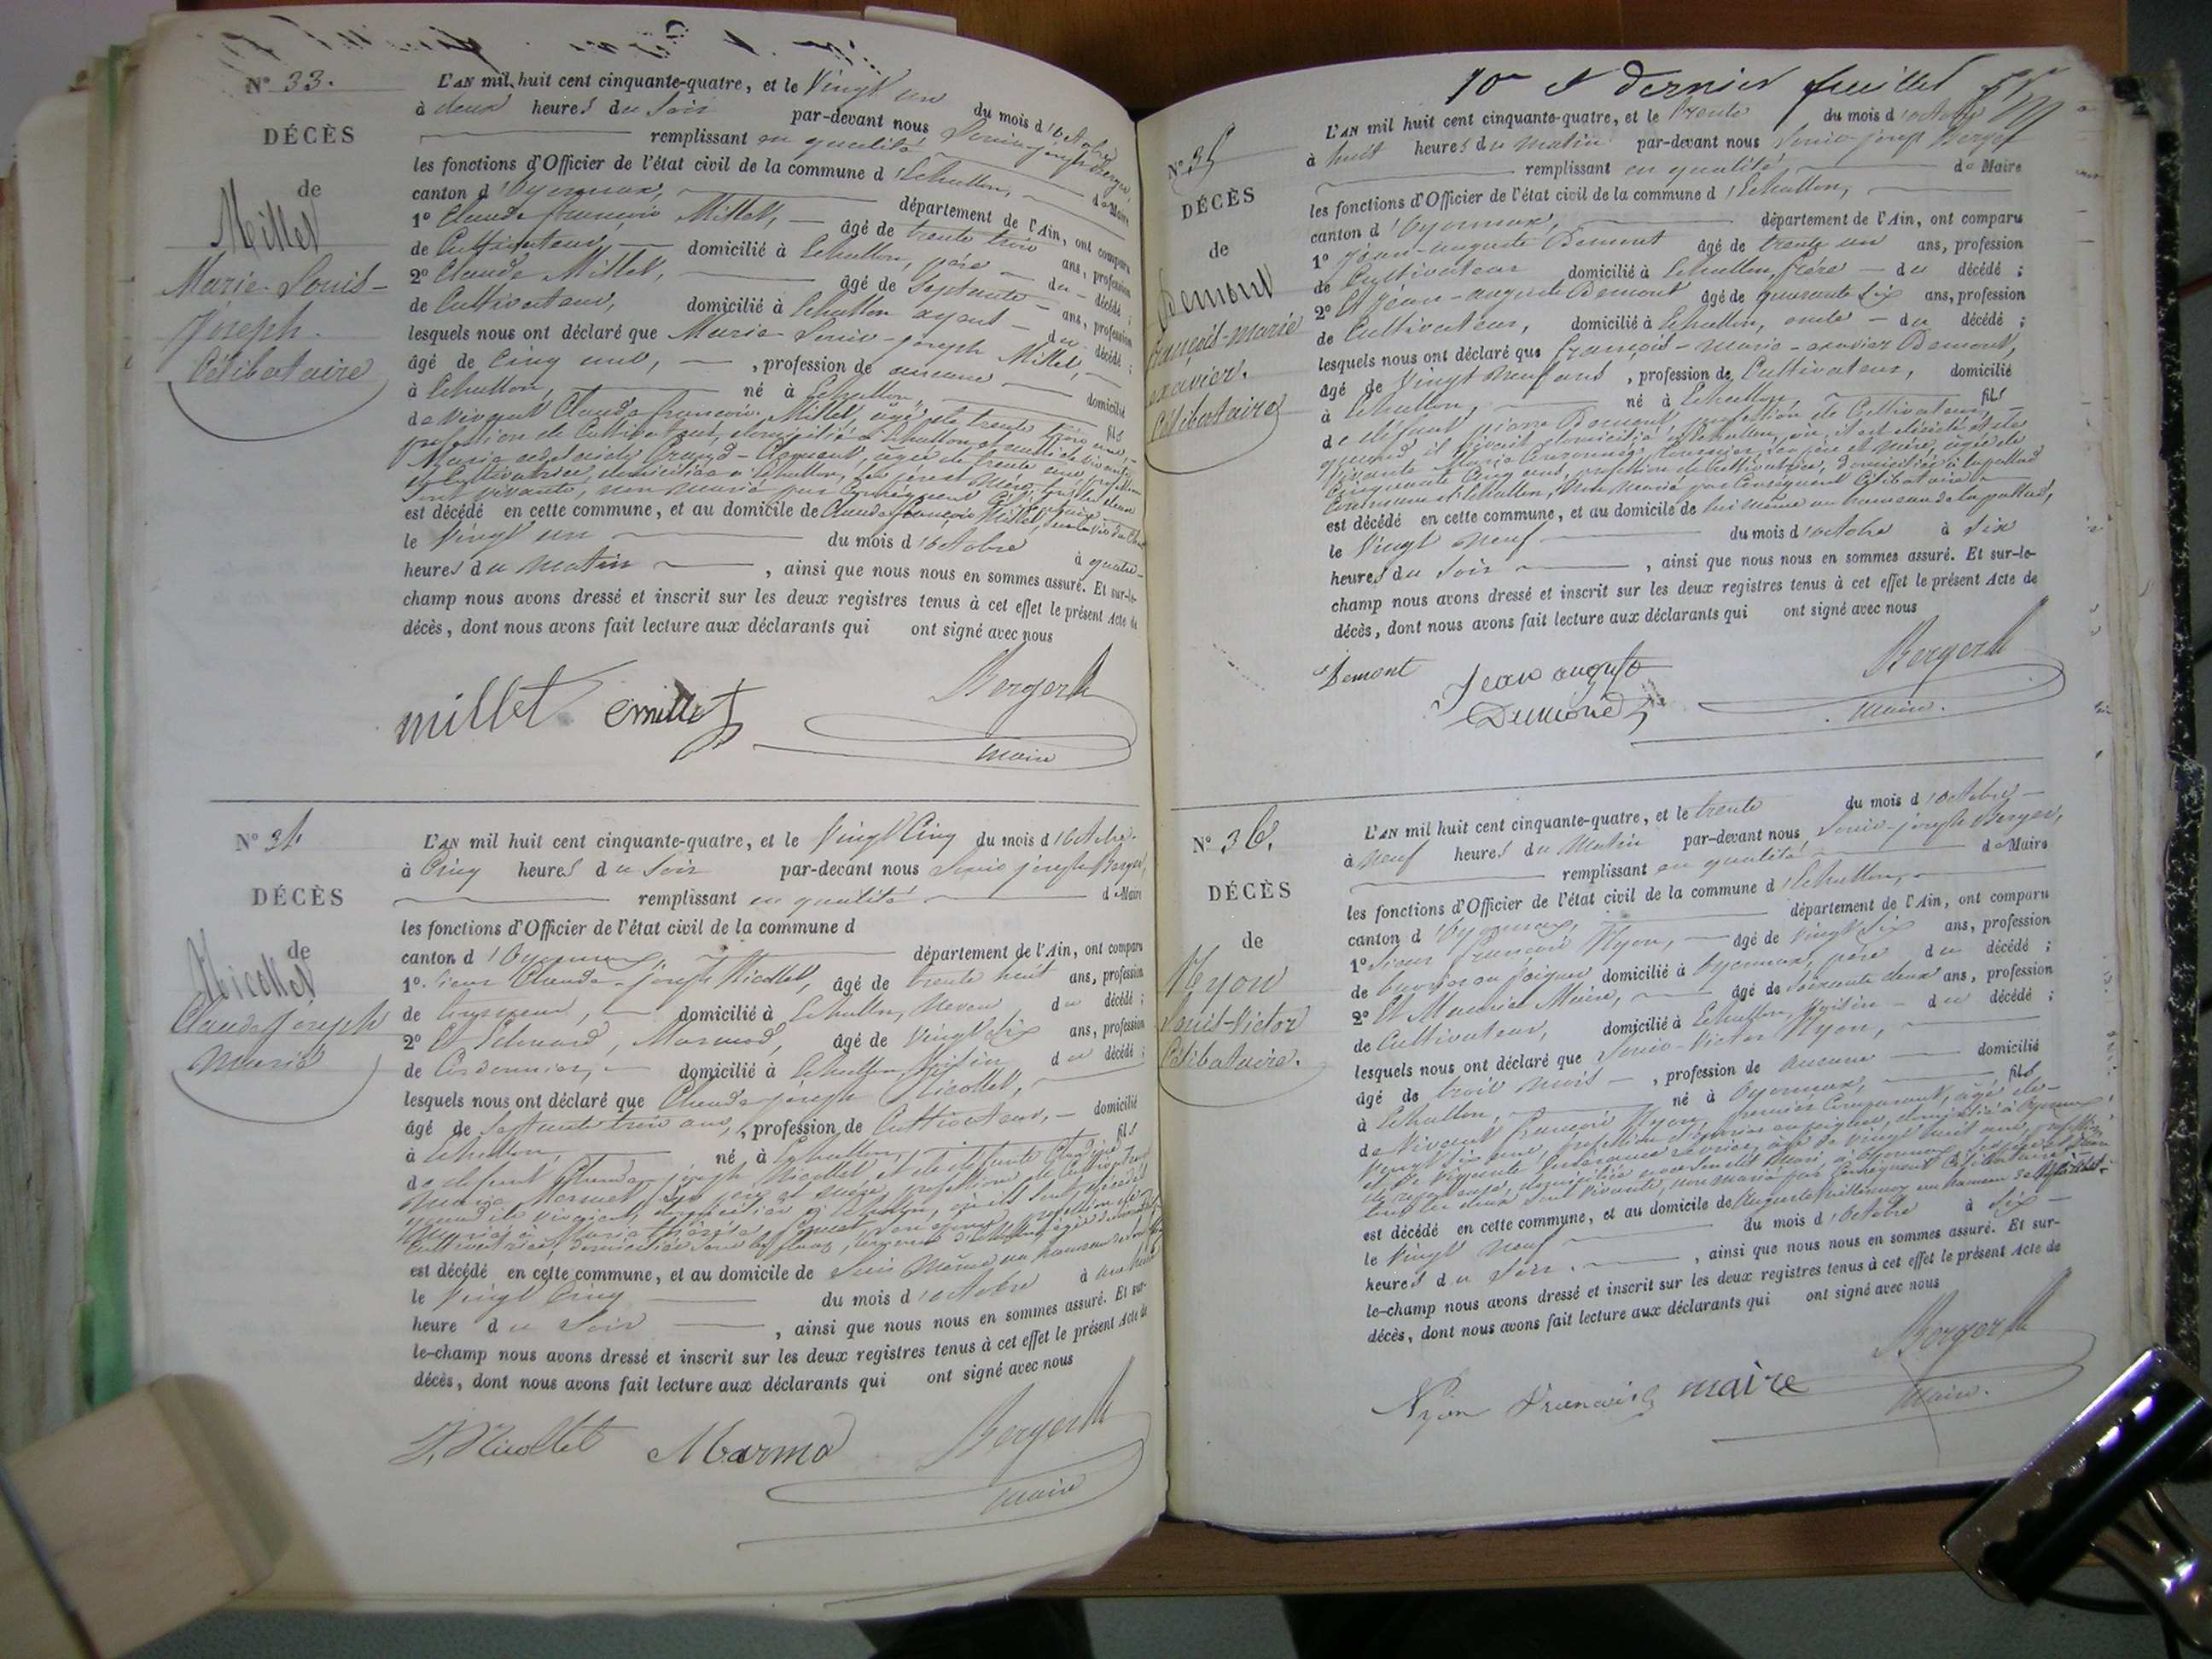 N° 33.
DÉCÈS
de
Millet
Marie-Louis-
Joseph.
Célibataire
L'AN mil huit cent cinquante-quatre, et le Vingt un du mois d'octobre
à deux heures du Soir par-devant nous Louis joseph Berger,
remplissant en qualité de Maire
les fonctions d'Officier de l'état civil de la commune d'Echallon,
canton d'Oyonnax, département de l'Ain, ont comparu
1° Claude françois Millet, âgé de trente trois ans, profession
de Cultivateur, domicilié à Echallon, père du décédé ;
2° Claude Millet, âgé de Septante ans, profession
de Cultivateur, domicilié à Echallon ayeul du décédé ;
lesquels nous ont déclaré que Marie-Louis-joseph Millet,
âgé de Cinq ans, , profession de aucune domicilié
à Echallon, né à Echallon, fils
de vivant Claude françois Millet, âgé de trente trois ans,
profession de Cultivateur, domicilié à Echallon et
Marie Grand-Clément, âgée de trente
Cultivatrice, domiciliée à Echallon, ses père et mère, tous les deux
sont vivants, non marié par Conséquent Célibataire
est décédé en cette commune, et au domicile de Claude françois Millet,
le Vingt un du mois d'octobre à quatre
heures du matin , ainsi que nous nous en sommes assuré. Et sur-le-
champ nous avons dressé et inscrit sur les deux registres tenus à cet effet le présent Acte de
décès, dont nous avons fait lecture aux déclarants qui ont signé avec nous
millet Cmillet Berger
maire
N° 34
DÉCÈS
de
Nicollet
Claude joseph
marié
L'AN mil huit cent cinquante-quatre, et le Vingt Cinq du mois d'octobre
à Cinq heures du Soir par-devant nous Louis joseph Berger,
remplissant en qualité de Maire
les fonctions d'Officier de l'état civil de la commune d
canton d'Oyonnax, département de l'Ain, ont comparu
1° Sieur Claude-joseph Nicollet, âgé de trente huit ans, profession
de domicilié à Echallon, Neveu du décédé ;
2° Et Edouard, Marmod, âgé de Vingt Six ans, profession
de Cordonnier, domicilié à Echallon, Voisin du décédé ;
lesquels nous ont déclaré que Claude joseph Nicollet,
âgé de Septante trois ans, , profession de Cultivateur, domicilié
à Echallon, né à Echallon, fils
de défunt Claude joseph Nicollet et de défunte
Marie ses père et mère, profession de Cultivateurs
quand ils vivaient, domiciliés à Echallon, où ils sont décédés
Marié à Marie profession de
Cultivatrice, domiciliée
est décédé en cette commune, et au domicile de Lui Même au hameau de
le Vingt Cinq du mois d'octobre à une
heure du Soir , ainsi que nous nous en sommes assuré. Et sur-
le-champ nous avons dressé et inscrit sur les deux registres tenus à cet effet le présent Acte de
décès, dont nous avons fait lecture aux déclarants qui ont signé avec nous
Nicollet Marmod Berger
maire
10e et dernier feuillet
N° 35
DÉCÈS
de
Demont
françois-marie
exavier.
Célibataire
L'AN mil huit cent cinquante-quatre, et le trente du mois d'octobre
à huit heures du matin par-devant nous Louis josep Berger
remplissant en qualité de Maire
les fonctions d'Officier de l'état civil de la commune d'Echallon,
canton d'Oyonnax, département de l'Ain, ont comparu
1° jean-auguste Demont âgé de trente un ans, profession
de Cultivateur domicilié à Echallon, frère du décédé ;
2° Et jean-auguste Demont âgé de quarante Six ans, profession
de Cultivateur, domicilié à Echallon, oncle du décédé ;
lesquels nous ont déclaré que françois-marie-exavier Demont,
âgé de Vingt neuf ans , profession de Cultivateur, domicilié
à Echallon, né à Echallon, fils
de défunt pierre Demont, profession de Cultivateur,
quand il vivait domicilié à Echallon, où il est décédé et de
vivante Marie ses père et mère, âgée de
Cinquante Cinq ans, profession de Cultivatrice, domiciliée à lapallud
Commune d'Echallon, Non Marié par Conséquent Célibataire
est décédé en cette commune, et au domicile de lui même au hameau de la pallud,
le Vingt Neuf du mois d'octobre à Six
heures du Soir , ainsi que nous nous en sommes assuré. Et sur-le-
champ nous avons dressé et inscrit sur les deux registres tenus à cet effet le présent Acte de
décès, dont nous avons fait lecture aux déclarants qui ont signé avec nous
Demont Jean auguste Berger
Dumond maire.
N° 36.
DÉCÈS
de
Nyon
Louis-Victor
Célibataire.
L'AN mil huit cent cinquante-quatre, et le trente du mois d'octobre
à Neuf heures du Matin par-devant nous Louis-joseph Berger,
remplissant en qualité de Maire
les fonctions d'Officier de l'état civil de la commune d'Echallon,
canton d'Oyonnax, département de l'Ain, ont comparu
1° Sieur françois Nyon, âgé de Vingt Six ans, profession
de ouvrier en peignes domicilié à Oyonnax, père du décédé ;
2° Et Maurice Maire, âgé de Soixante deux ans, profession
de Cultivateur, domicilié à Echallon, Voisin du décédé ;
lesquels nous ont déclaré que Louis-Victor Nyon,
âgé de trois mois , profession de aucune domicilié
à Echallon, né à Oyonnax, fils
de Vivant françois Nyon, premier Comparant, âgé de
Vingt Six ans, profession d'ouvrier en peignes, domicilié à Oyonnax,
et de Vivante âgée de Vingt huit ans, profession
de domiciliée avec Son dit Mari, à Oyonnax, Ses père et Mère
tous les deux Sont Vivants, non marié par Conséquent Célibataire
est décédé en cette commune, et au domicile de Auguste au hameau de
le Vingt Neuf du mois d'octobre à Six
heures du Soir. , ainsi que nous nous en sommes assuré. Et sur-
le-champ nous avons dressé et inscrit sur les deux registres tenus à cet effet le présent Acte de
décès, dont nous avons fait lecture aux déclarants qui ont signé avec nous
Nyon francois maire Berger
maire.